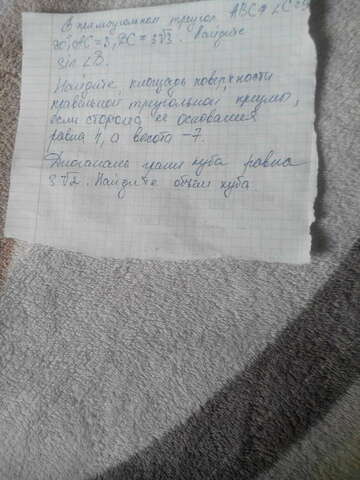 В прямоугольном треугол. ABC ∠C=
90°, AC=3, BC = 3√3. Найдите
sin ∠B.
Найдите площадь поверхности
правильной треугольной призмы,
если сторона ее основания
равна 4, а высота -7.
Диагональ грани куба равна
3√2. Найдите объем куба